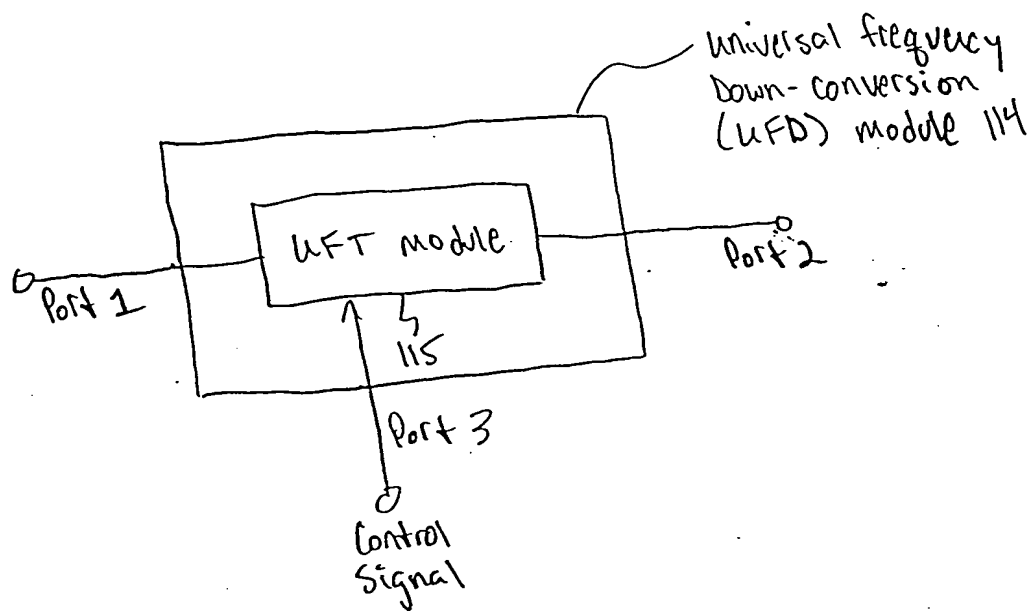 universal frequency
Down-conversion
(UFD) module 114
UFT module
Port 1
Port 2
115
Port 3
Control
Signal